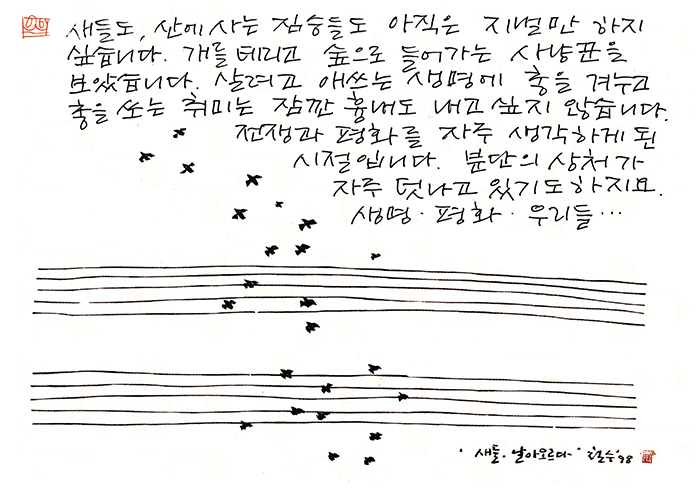 새들도, 산에 사는 짐승들도 아직은 지껄만 하지
싶습니다. 개를 데리고 숲으로 들어가는 사냥꾼을
보았습니다. 살려고 애쓰는 생명에 총을 겨누고
총을 쏘는 취미는 잠깐 흉내도 내고 싶지 않습니다.
전쟁과 평화를 자주 생각하게 된
시절입니다. 분단의 상처가
자주 덧나고 있기도 하지요.
생명·평화·우리들…
·새들·날아오르다· 철수 '98